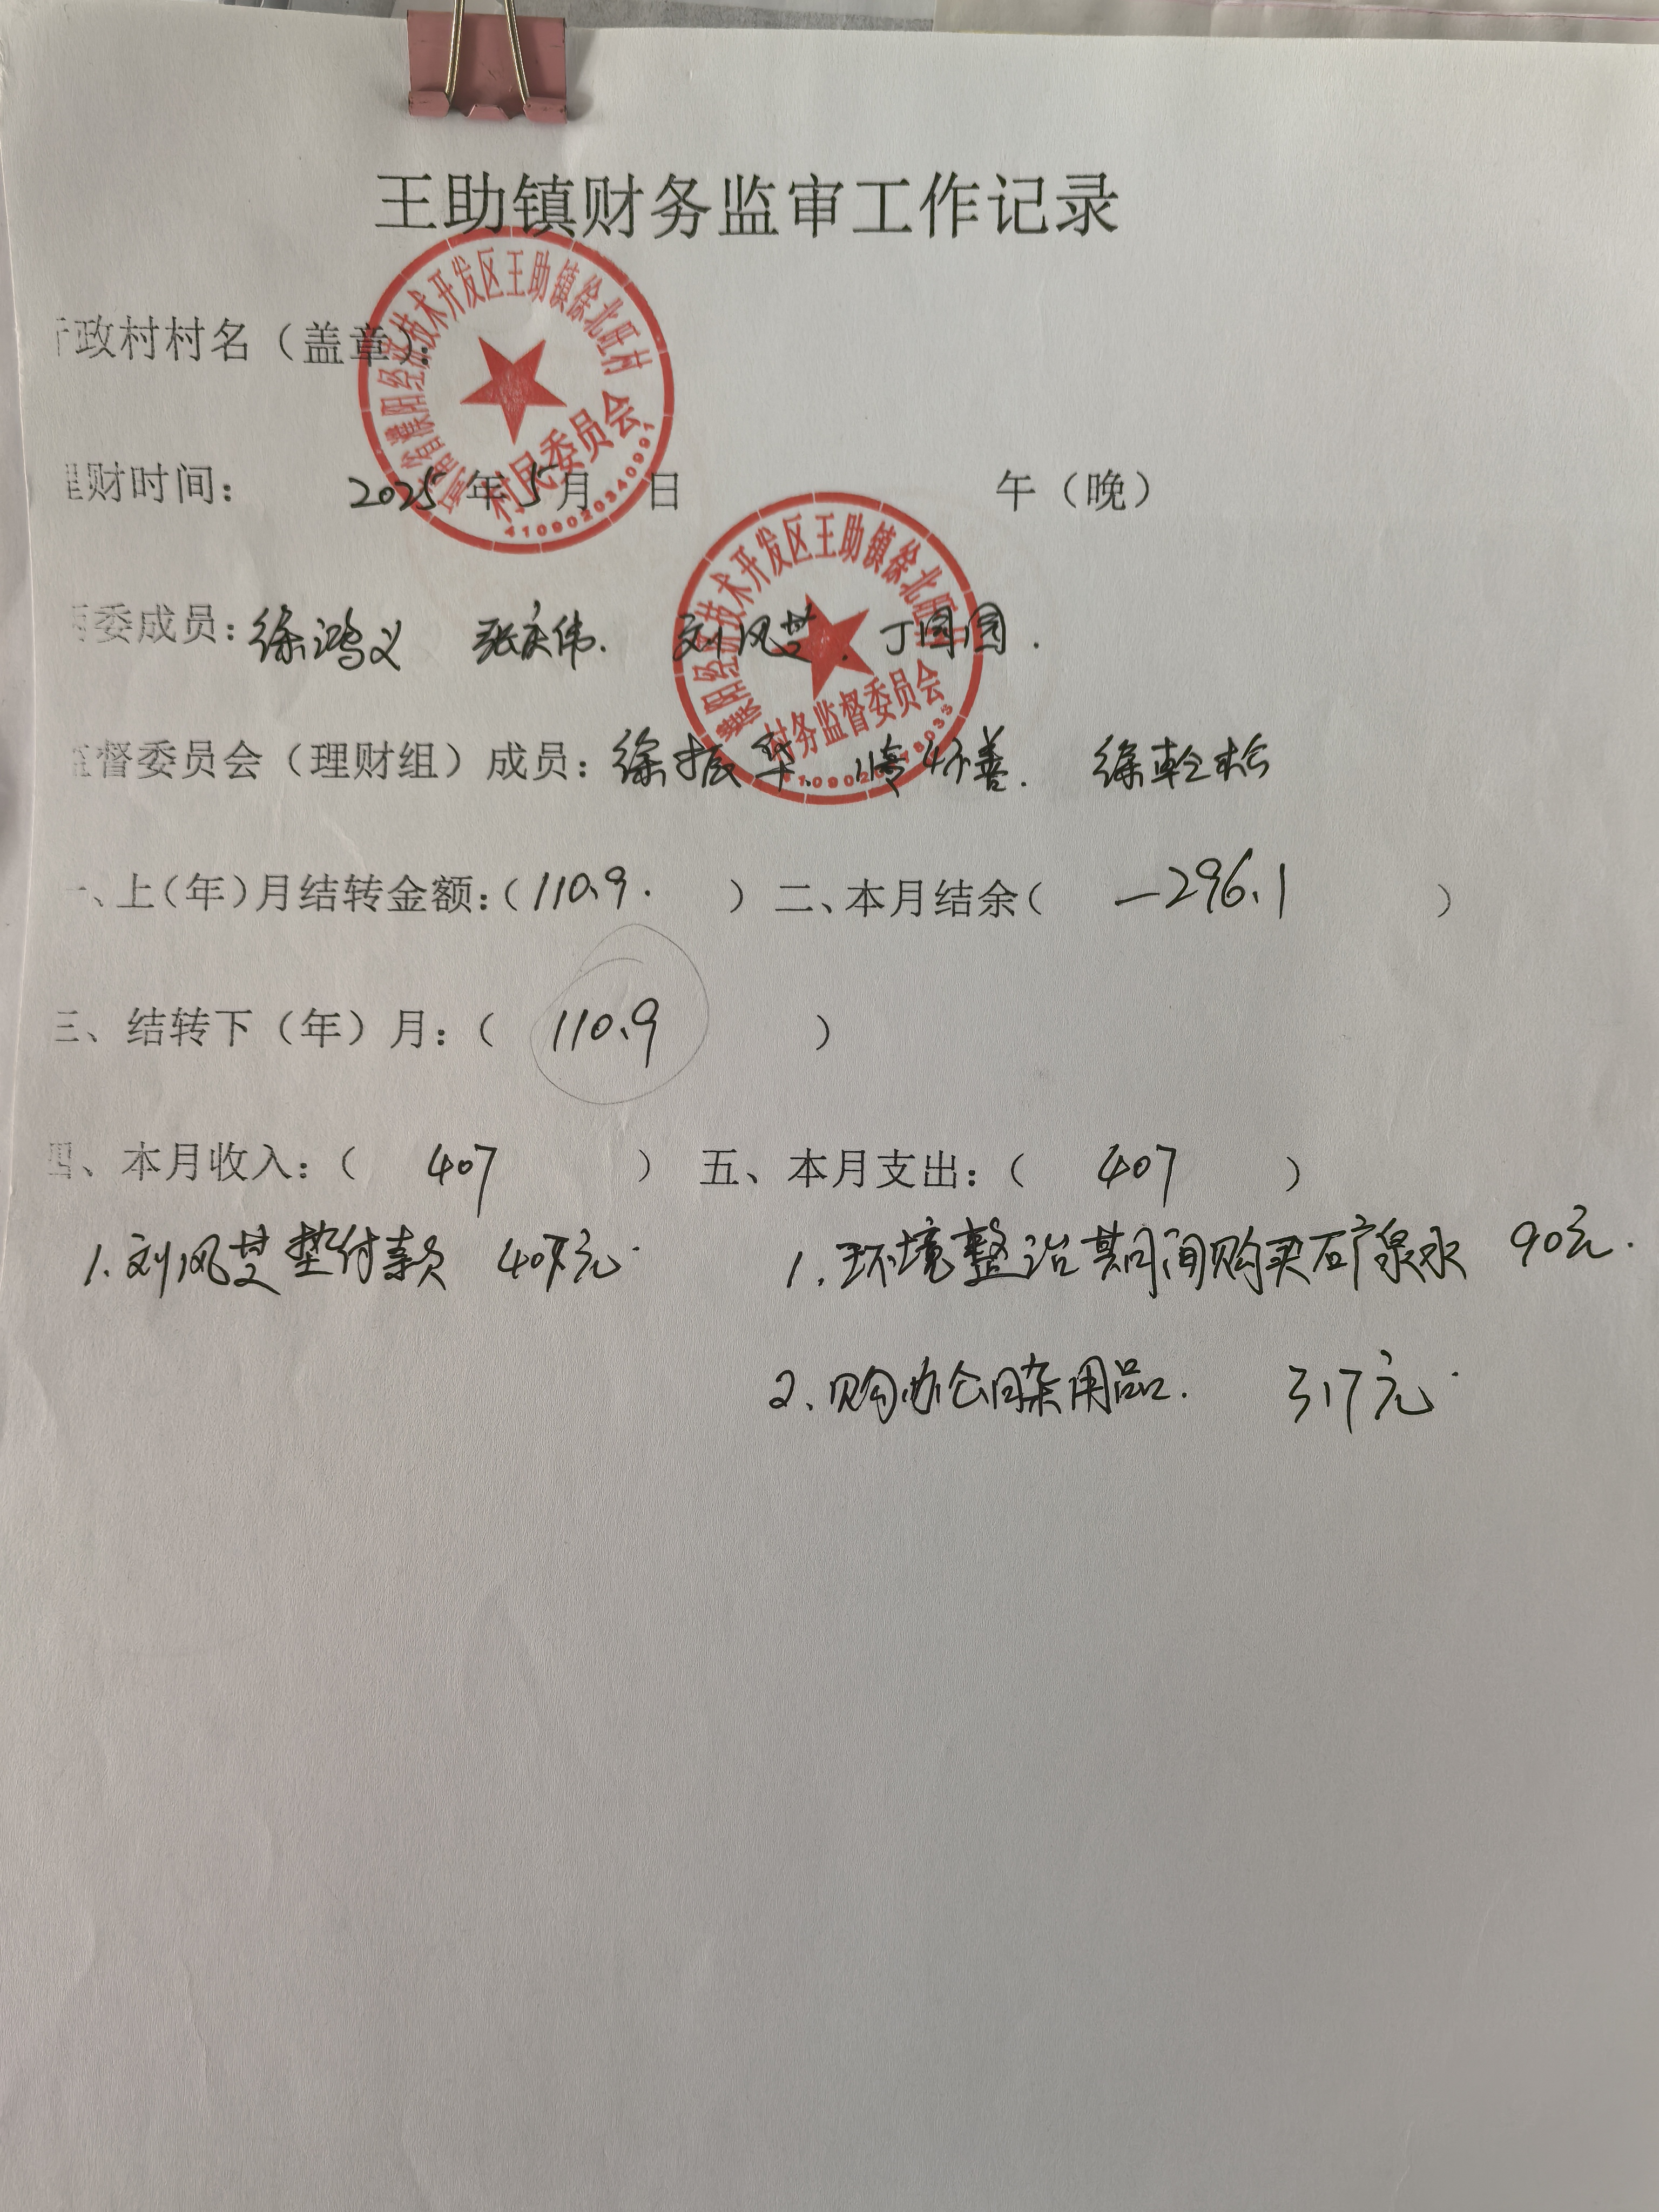 王助镇财务监审工作记录
行政村村名（盖章）：
技术开发区王助镇徐北 村
村民委员会
4109020340991
理财时间： 2025年5月 日 午（晚）
技术开发区王助镇徐北
村务监督委员会
两委成员：徐鸿义 张庆伟. 刘风芝. 丁圆圆.
监督委员会（理财组）成员：徐振华. 善. 徐乾松
一、上（年）月结转金额：（110.9. ） 二、本月结余（ -296.1 ）
三、结转下（年）月：（ 110.9 ）
四、本月收入：（ 407 ） 五、本月支出：（ 407 ）
1.刘风芝垫付款 407元. 1.环境整治期间购买矿泉水 90元.
2、购办公日杂用品. 317元.